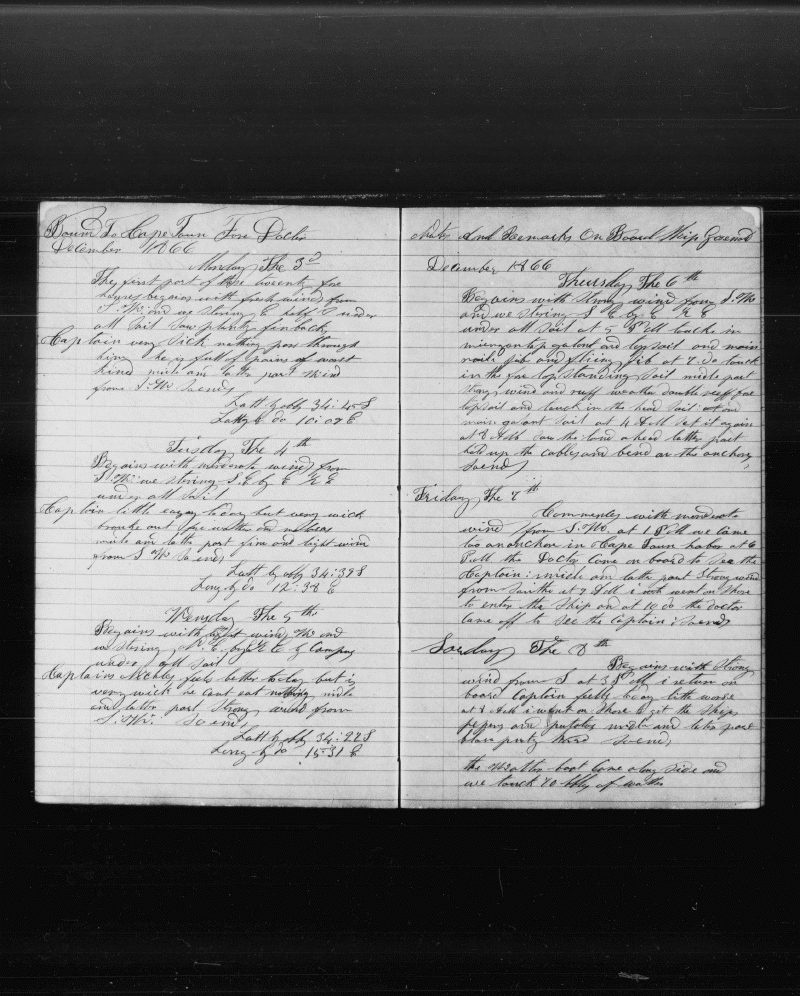 Bound To Cape Town Fore Doctor
December 1866
Monday The 3rd
The first part of this twenty fore
houres begains with fresh winds from
S. W. and we string E half S under
all sail saw plenty finbacks
Captain very sick nothing pass through
him he is full of pains of worst
kind midle and later part wind
from S. W. so ends
Latt by obb 34:45 S
Long by do 10:07 E
Teisday The 4th
Begains with moderate winds from
S. W. we string S. E by E ½ E
under all sail
Captain little easy to day but very wick
midle and later part fine and light wind
from S W so ends
Latt by obb 34:39 S
Long by do 12:38 E
Wensday The 5th
Begains with light winds W and
we string E by Compas
under all sail
Captains Nickles feels better to day but is
very wick he cant eat nothing midle
and later part strong wind from
S. W. so ends
Latt by obb 34:22 S
Long by do 15:31 E
Notes And Remarks On Board Ship
December 1866
Thursday The 6th
Begains with strong wind from S. W.
and we string S E by E ½ E
under all sail at 5 P M tuck in
top galant and top sail and main
sail jib and fliing jib at 7 do tuck
in the fore top standing sail midle part
strong wind and ruff weather double reeff fore
topsail and tuck in the head sail at
main galant sail at 4 A M set it again
at 8 A M saw the land ahead latter part
the cables and bend on the anchors
so ends
Friday The 7th
Commences with moderate
wind from S. W. at 1 P M we came
too anchor in Cape Town harbor at 6
P M the Doctor come on board to see the
Captain : midle and later part strong wind
from southe at 9 A M i went on shore
to enter the ship and at 10 do the doctor
came off to see the Captain : so ends
The 8th
Begains with strong
wind from S at 3 P M i return on
board Captain feels to day little worse
at 8 A M i went on shore to get the ships
papers and potatoes midle and later part
blow prety hard so ends
the watter boat came along side and
we touck 70 bbls of watter